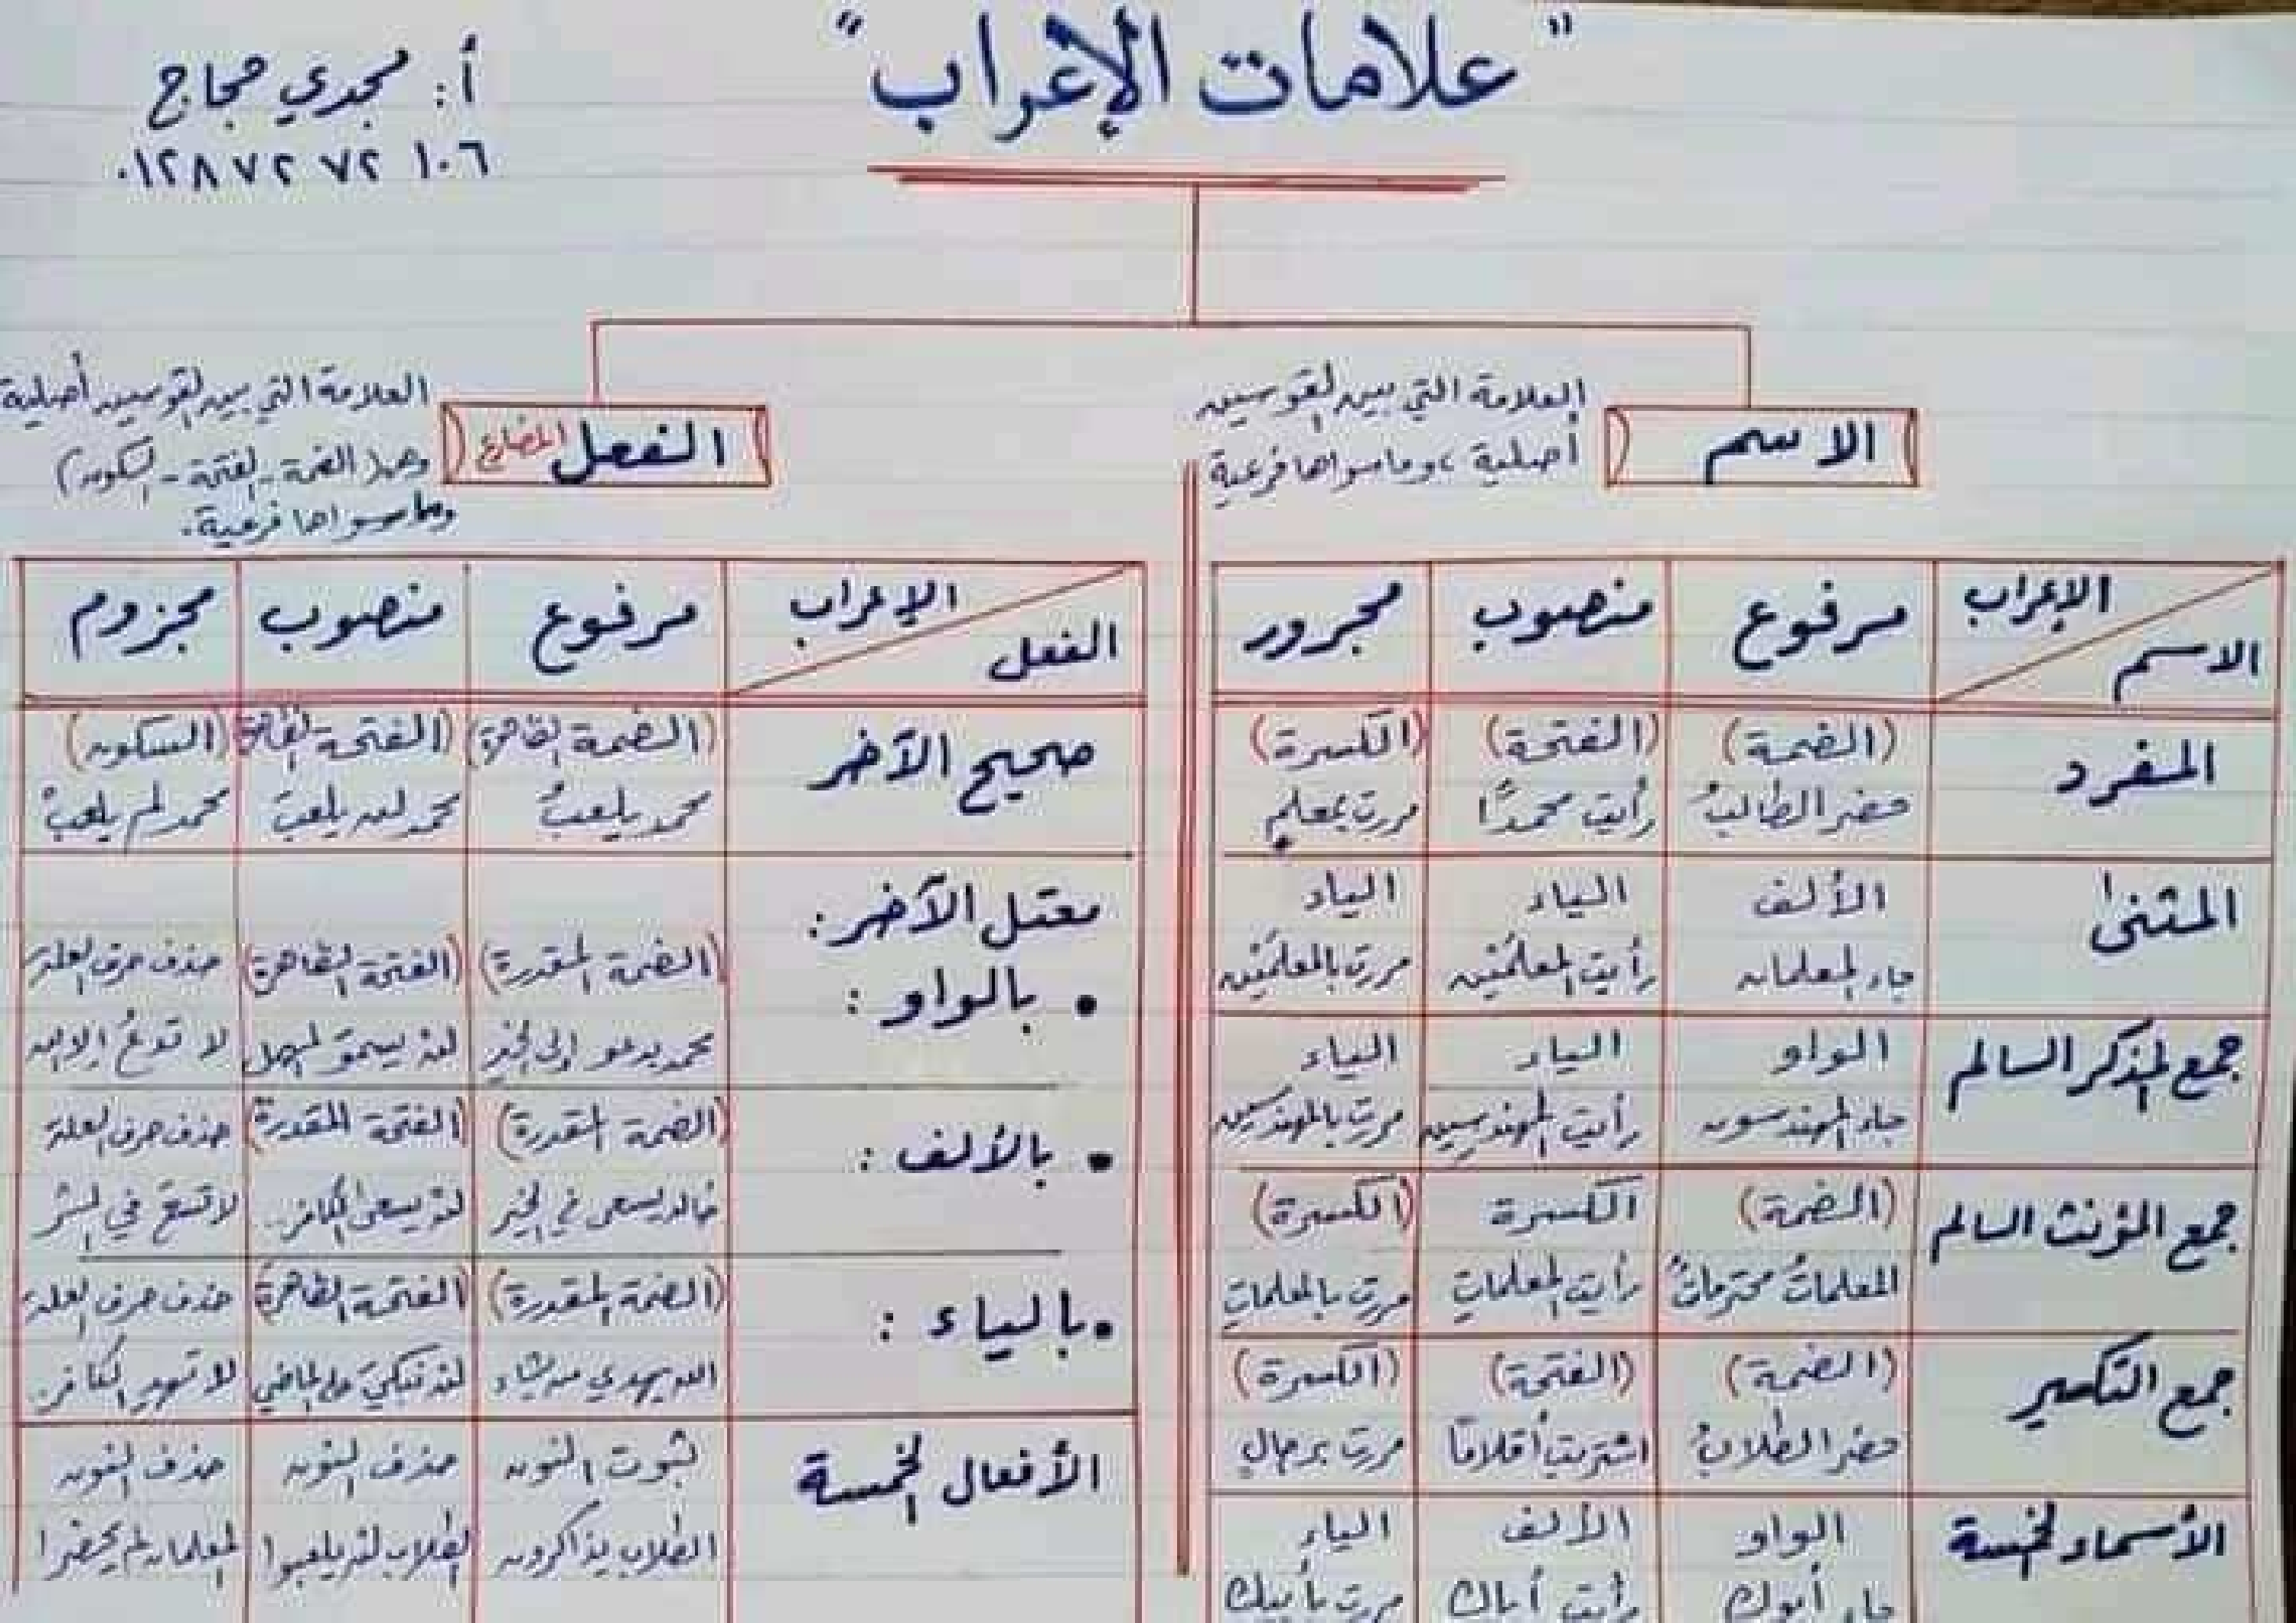 " علامات الإعراب "
أ: مجدي حجاج
٠١٢٨٧٢ ٧٢ ١٠٦
الاسم
العلامة التي بين القوسين
أصلية ، وما سواها فرعية
الإعراب
الاسم
مرفوع
منصوب
مجرور
المفرد
(الضمة)
حضر الطالبُ
(الفتحة)
رأيت محمدًا
(الكسرة)
مررت بمعلمٍ
المثنى
الألف
جاء المعلمان
الياء
رأيت المعلمَين
الياء
مررت بالمعلمَين
جمع المذكر السالم
الواو
جاء المهندسون
الياء
رأيت المهندسِين
الياء
مررت بالمهندسين
جمع المؤنث السالم
(الضمة)
المعلماتُ محترماتٌ
الكسرة
رأيت المعلماتِ
(الكسرة)
مررت بالمعلماتِ
جمع التكسير
(الضمة)
حضر الطلابُ
(الفتحة)
اشتريت أقلامًا
(الكسرة)
مررت برجالٍ
الأسماء الخمسة
الواو
جاء أبوك
الألف
رأيت أباك
الياء
مررت بأبيك
الفعل المضارع
العلامة التي بين القوسين أصلية
وهي (الضمة - الفتحة - السكون)
وما سواها فرعية.
الإعراب
الفعل
مرفوع
منصوب
مجزوم
صحيح الآخر
(الضمة الظاهرة)
محمد يلعبُ
(الفتحة الظاهرة)
محمد لن يلعبَ
(السكون)
محمد لم يلعبْ
معتل الآخر :
• بالواو :
(الضمة المقدرة)
محمد يدعو إلى الخير
(الفتحة الظاهرة)
لن يسموَ المهمل
حذف حرف العلة
لا تدعُ إلا الله
• بالألف :
(الضمة المقدرة)
خالد يسعى في الخير
(الفتحة المقدرة)
لن يسعى الكافر..
حذف حرف العلة
لا تسعَ في الشر
• بالياء :
(الضمة المقدرة)
الله يهدي من يشاء
(الفتحة الظاهرة)
لن نبكيَ على الماضي
حذف حرف العلة
لا تهدِ الكافر.
الأفعال الخمسة
ثبوت النون
الطلاب يذاكرون
حذف النون
الطلاب لن يلعبوا
حذف النون
المعلمان لم يحضرا